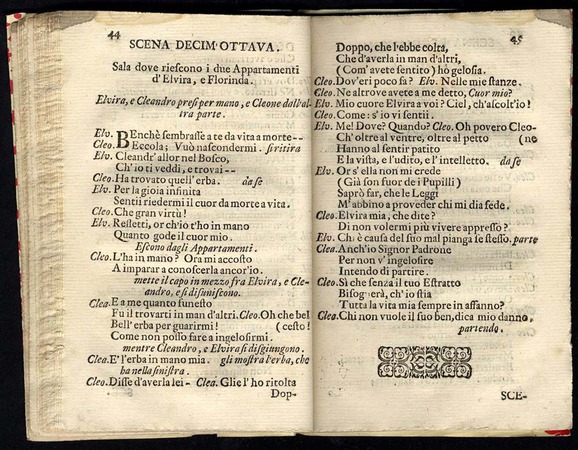 44
SCENA DECIM' OTTAVA.
Sala dove riescono i due Appartamenti
d'Elvira, e Florinda.
Elvira, e Cleandro presi per mano, e Cleone dall'al-
tra parte.
Elv. BEnchè sembrasse a te da vita a morte--
Cleo. Eccola; Vuò nascondermi. si ritira
Elv. Cleandr' allor nel Bosco,
Ch' io ti veddi, e trovai--
Cleo. Ha trovato quell' erba. da se
Elv. Per la gioia infinita
Sentii riedermi il cuor da morte a vita.
Cleo. Che gran virtù!
Elv. Resletti, or ch'io t'ho in mano
Quanto gode il cuor mio.
Escono dagli Appartamenti.
Cleo. L'ha in mano? Ora mi accosto
A imparar a conoscerla ancor'io.
mette il capo in mezzo fra Elvira, e Cle-
andro, e si disuniscono.
Clea. E a me quanto funesto
Fu il trovarti in man d'altri. Cleo. Oh che bel
Bell' erba per guarirmi! ( cesto!
Come non posso fare a ingelosirmi.
mentre Cleandro, e Elvira si disgiungono.
Clea. E' l'erba in mano mia. gli mostra l'erba, che
ha nella sinistra.
Cleo. Disse d'averla lei- Clea. Glie l' ho ritolta
Dop-
45
Doppo, che l'ebbe colta,
Che d'averla in man d'altri,
( Com' avete sentito ) hò gelosia.
Cleo. Dov'eri poco fa? Elv. Nelle mie stanze.
Cleo. Ne altrove avete a me detto, Cuor mio?
Elv. Mio cuore Elvira a voi? Ciel, ch'ascolt'io!
Cleo. Come: s' io vi sentii.
Elv. Me! Dove? Quando? Cleo. Oh povero Cleo-
Ch' oltre al ventre, oltre al petto ( ne
Hanno al sentir patito
E la vista, e l'udito, e l' intelletto. da se
Elv. Or s' ella non mi crede
( Già son fuor de i Pupilli )
Saprò far, che le Leggi
M'abbino a proveder chi mi dia fede.
Cleo. Elvira mia, che dite?
Di non volermi più vivere appresso?
Elv. Chi è causa del suo mal pianga se stesso. parte
Clea. Anch'io Signor Padrone
Per non v' ingelosire
Intendo di partire.
Cleo. Sì che senza il tuo Estratto
Bisognerà, ch' io stia
Tutta la vita mia sempre in affanno?
Clea. Chi non vuole il suo ben, dica mio danno.
partendo.
SCE-